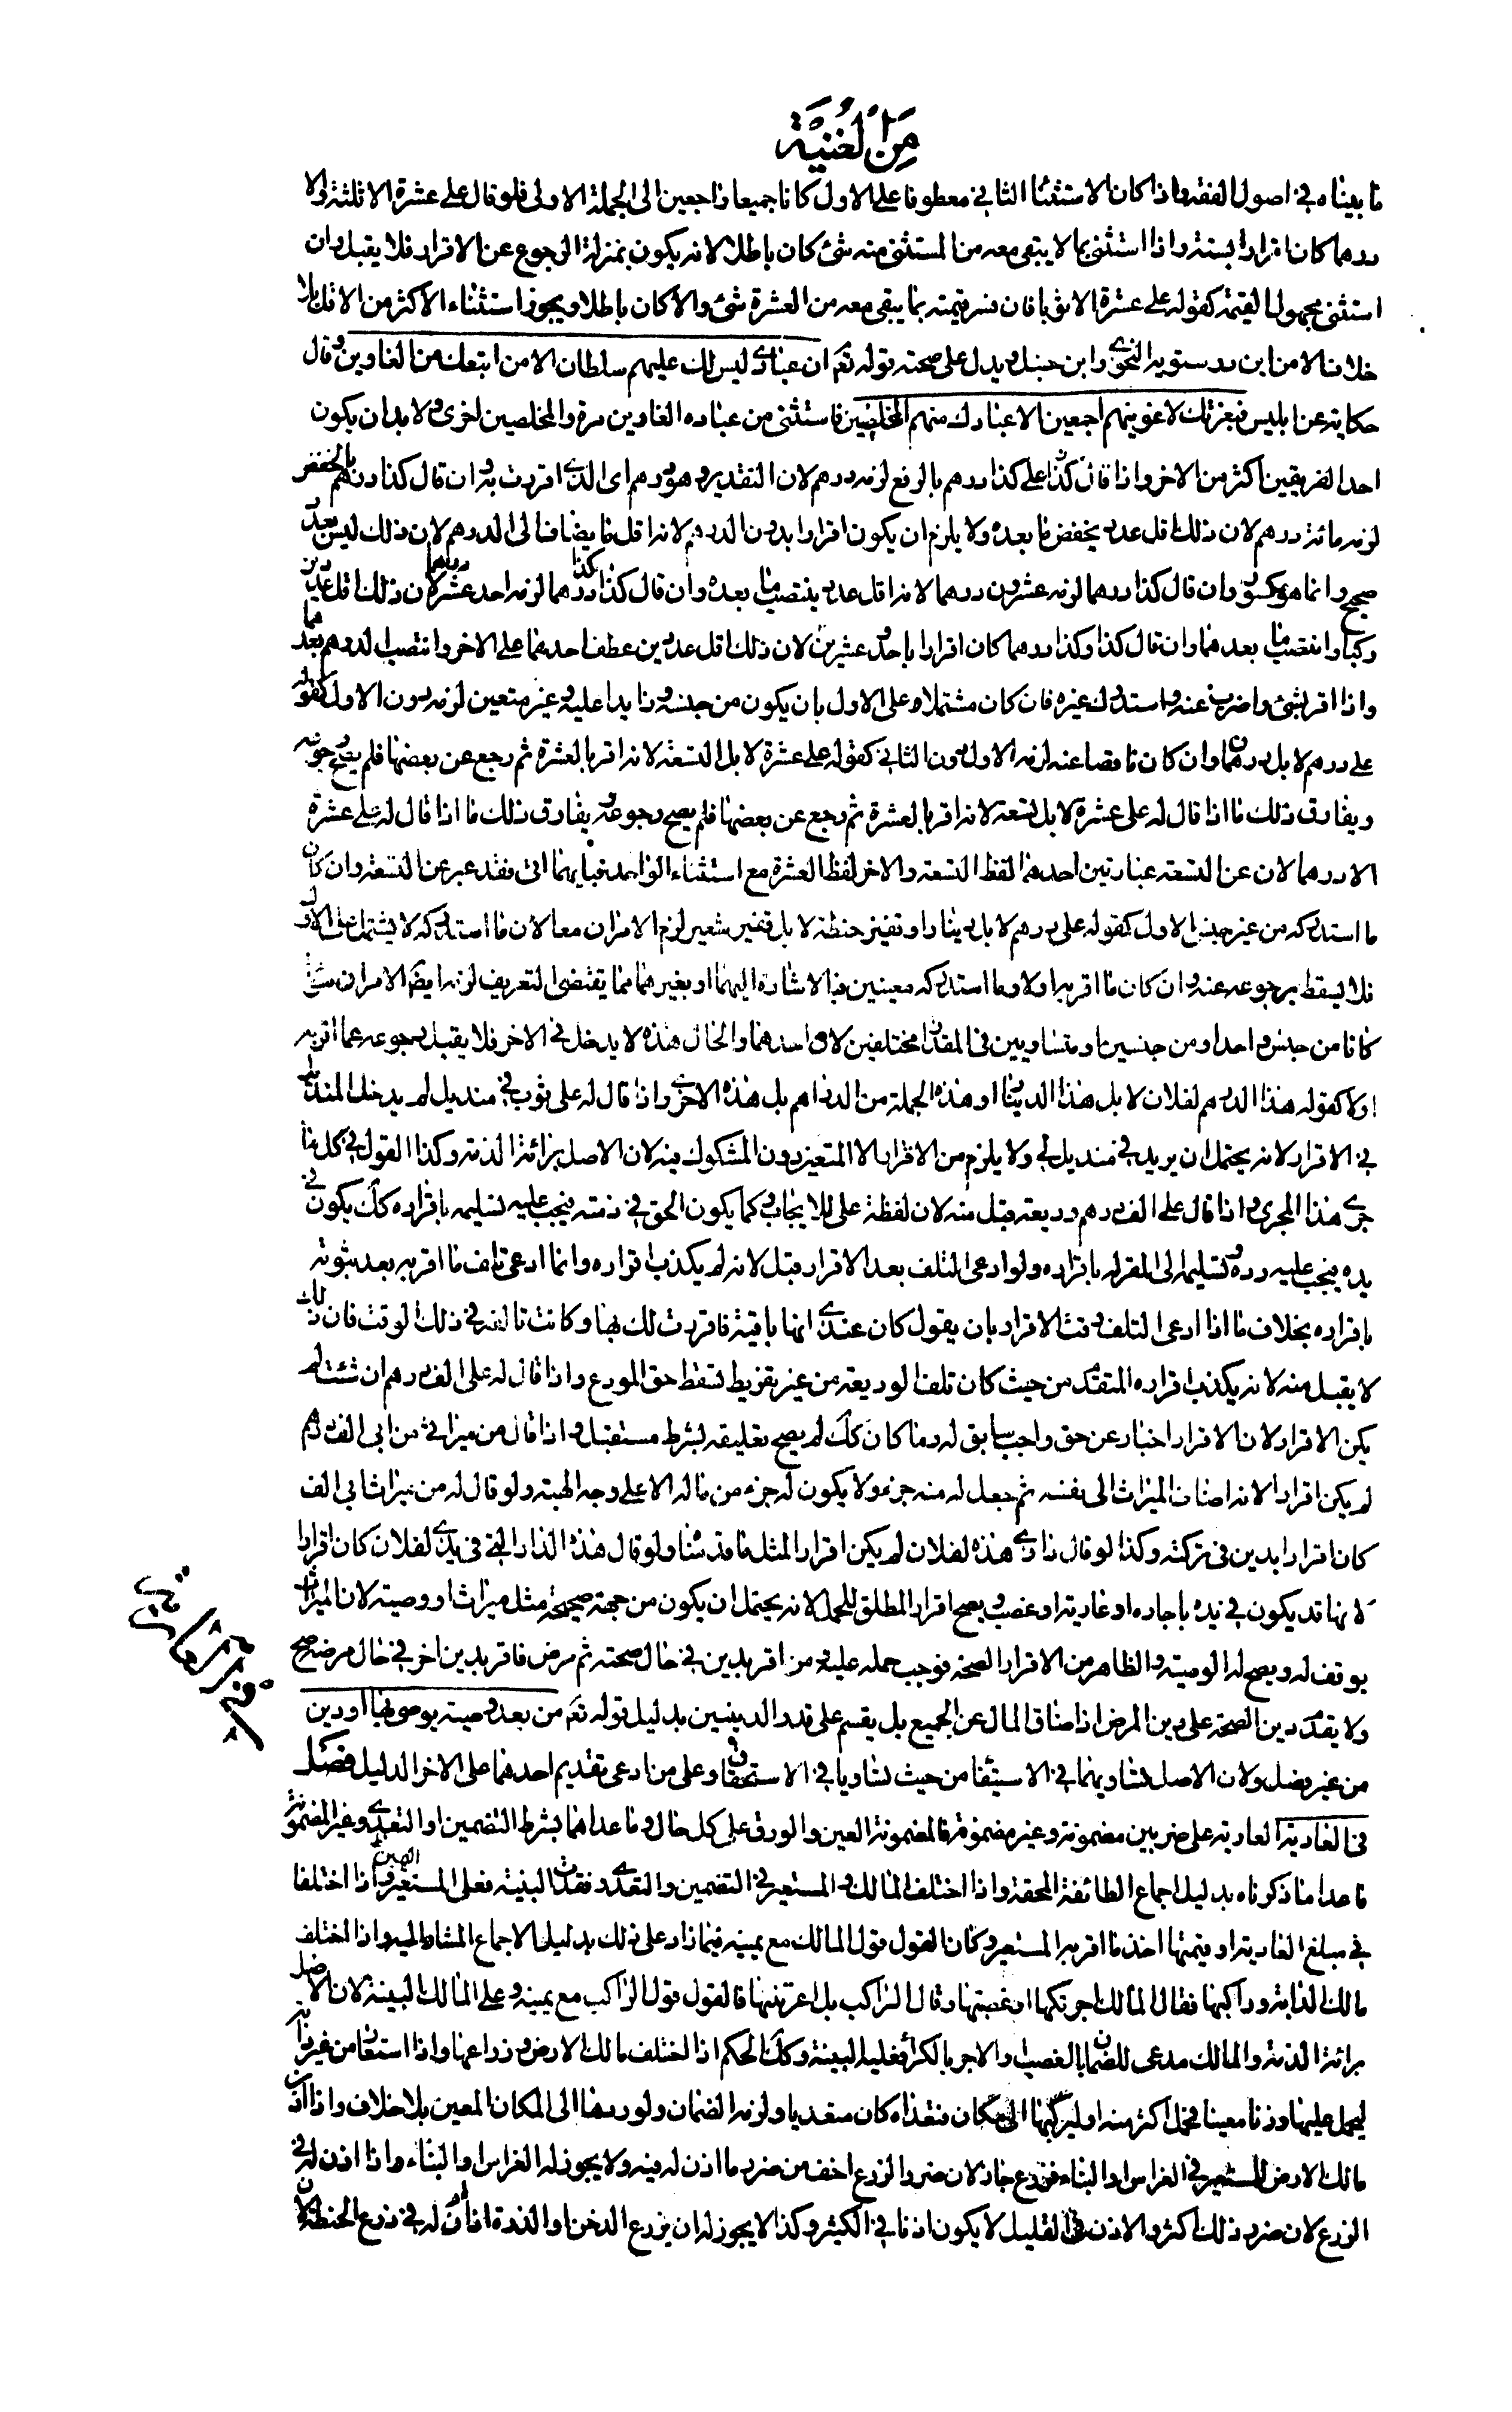 مِنَ الْغُنْيَة
ما بيناه في اصول الفقه واذا كان الاستثناء الثاني معطوفا على الاول كانا جميعا راجعين الى الجملة الاولى فلو قال علي عشرة الا ثلثة والا
درهما كان اقرارا بستة واذا استثنى بما لا يبقى معه من المستثنى منه شئ كان باطلا لانه يكون بمنزلة الرجوع عن الاقرار فلا يقبل وان
استثنى مجهول القيمة كقوله علي عشرة الا ثوبا فان فسر قيمته بما يبقى معه من العشرة شئ والا كان باطلا ويجوز استثناء الاكثر من الاقل بلا
خلاف الا من ابن درستويه النحوي وابن حنبل ويدل على صحته قوله تع ان عبادي ليس لك عليهم سلطان الا من اتبعك من الغاوين وقال
حكاية عن ابليس فبعزتك لاغوينهم اجمعين الا عبادك منهم المخلصين فاستثنى من عباده الغاوين مرة والمخلصين اخرى ولا بد ان يكون
احد الفريقين اكثر من الاخر واذا قال كذا علي كذا درهم بالرفع لزمه درهم لان التقدير هو درهم اى الذي اقررت به وان قال كذا درهم بالخفض
لزمه مائة درهم لان ذلك اقل عدد يخفض ما بعده ولا يلزم ان يكون اقرارا بدون الدرهم لانه اقل ما يضاف الى الدرهم لان ذلك ليس بعدد
صحيح وانما هو كسور وان قال كذا درهما لزمه عشرون درهما لانه اقل عدد ينتصب ما بعده وان قال كذا كذا درهما لزمه احد عشر درهما لان ذلك اقل عددين
ركبا وانتصب ما بعدهما وان قال كذا وكذا درهما كان اقرارا باحد وعشرين لان ذلك اقل عددين عطف احدهما على الاخر وانتصب الدرهم بعدهما
واذا اقر بشئ واضرب عنه واستدرك غيره فان كان مشتملا على الاول بان يكون من جنسه وزايدا عليه وغير متعين لزمه دون الاول كقوله
علي درهم لا بل درهمان وان كان ناقصا عنه لزمه الاول دون الثاني كقوله علي عشرة لا بل التسعة لانه اقر بالعشرة ثم رجع عن بعضها فلم يصح رجوعه
ويفارق ذلك ما اذا قال له علي عشرة لا بل تسعة لانه اقر بالعشرة ثم رجع عن بعضها فلم يصح رجوعه ويفارق ذلك ما اذا قال له علي عشرة
الا درهما لان عن التسعة عبارتين احدهما لفظ التسعة والاخر لفظ العشرة مع استثناء الواحد فبايهما اتى فقد عبر عن التسعة وان كان
ما استدركه من غير جنس الاول كقوله علي درهم لا بل دينار او قفيز حنطة لا بل قفيز شعير لزم الامران معا لان ما استدركه لا يشتمل على الاول
فلا يسقط برجوعه عنه وان كان ما اقر به اولا وما استدركه معينين بالاشارة اليهما او بغيرها مما يقتضى التعريف لزمه ايضا الامران سواء
كانا من جنس واحد او من جنسين او متساويين في المقدار او مختلفين لان احدهما والحال هذه لا يدخل في الاخر فلا يقبل رجوعه عما اقر به
اولا كقوله هذا الدرهم لفلان لا بل هذا الدينار او هذه الجملة من الدراهم بل هذه الاخرى واذا قال له علي ثوب في منديل لم يدخل المنديل
في الاقرار لانه يحتمل ان يريد في منديل لي ولا يلزم من الاقرار الا المتيقن دون المشكوك فيه لان الاصل برائة الذمة وكذا القول في كل ما
جرى هذا المجرى واذا قال علي الف درهم وديعة قبل منه لان لفظة علي للايجاب وكما يكون الحق في ذمته فيجب عليه تسليمه باقراره كك يكون في
يده فيجب عليه رده وتسليمه الى المقر له باقراره ولو ادعى التلف بعد الاقرار قبل لانه لم يكذب اقراره وانما ادعى تلف ما اقر به بعد ثبوته
باقراره بخلاف ما اذا ادعى التلف وقت الاقرار بان يقول كان عندي انها باقية فاقررت لك بها وكانت تالفة في ذلك الوقت فان ذلك
لا يقبل منه لانه يكذب اقراره المتقدم من حيث كان تلف الوديعة من غير تفريط يسقط حق المودع واذا قال له علي الف درهم ان شئت لم
يكن الاقرار لان الاقرار اخبار عن حق واجب سابق له وما كان كك لم يصح تعليقه بشرط مستقبل واذا قال من ميراثي من ابي الف درهم
لم يكن اقرارا لانه اضاف الميراث الى نفسه ثم جعل له منه جزء ولا يكون له جزء من ماله الا على وجه الهبة ولو قال له من ميراث ابي الف
كان اقرارا بدين في تركته وكذا لو قال داري هذه لفلان لم يكن اقرارا لمثل ما قدمناه ولو قال هذه الدار التي في يدي لفلان كان اقرارا
لانها قد يكون في يده باجارة او عارية او غصب ويصح اقرار المطلق للحمل لانه يحتمل ان يكون من جهة صحيحة مثل ميراث او وصية لان الميراث
يوقف له ويصح له الوصية والظاهر من الاقرار الصحة فوجب حمله عليه ومن اقر بدين في حال صحته ثم مرض فاقر بدين اخر في حال مرضه صح
ولا يقدم دين الصحة على دين المرض اذا ضاق المال عن الجميع بل يقسم على قدر الدينين بدليل قوله تع من بعد وصية يوصى بها او دين
من غير فصل ولان الاصل تساويهما في الاستيفاء من حيث تساويا في الاستحقاق وعلى من ادعى تقديم احدهما على الاخر الدليل فصل
في العارية العارية على ضربين مضمونة وغير مضمونة فالمضمونة العين والورق على كل حال وما عداهما بشرط التضمين او التعدي وغير المضمونة
ما عدا ما ذكرناه بدليل اجماع الطائفة المحقة واذا اختلف المالك والمستعير في التضمين والتعدي وفقدت البينة فعلى المستعير اليمين واذا اختلفا
في مبلغ العارية او قيمتها اخذ ما اقر به المستعير وكان القول قول المالك مع يمينه فيما زاد على ذلك بدليل الاجماع المشار اليه واذا اختلف
مالك الدابة وراكبها فقال المالك اجرتكها او غصبتها وقال الراكب بل اعرتنيها فالقول قول الراكب مع يمينه وعلى المالك البينة لان الاصل
برائة الذمة والمالك مدعى للضمان بالغصب والاجر بالكراء فعليه البينة وكك الحكم اذا اختلف مالك الارض وزراعها واذا استعار من غيره دابة
ليحمل عليها وزنا معينا فحمل اكثر منه او ليركبها الى مكان فتعداه كان متعديا ولزمه الضمان ولو ردها الى المكان المعين بلا خلاف واذا اذن
مالك الارض للمستعير في الغراس والبناء فزرع جاز لان ضرر الزرع اخف من ضرر ما اذن له فيه ولا يجوز له الغراس والبناء واذا اذن له في
الزرع لان ضرر ذلك اكثر والاذن في القليل لا يكون اذنا في الكثير وكذا لا يجوز له ان يزرع الدخن او الذرة اذا اذن له في زرع الحنطة لان